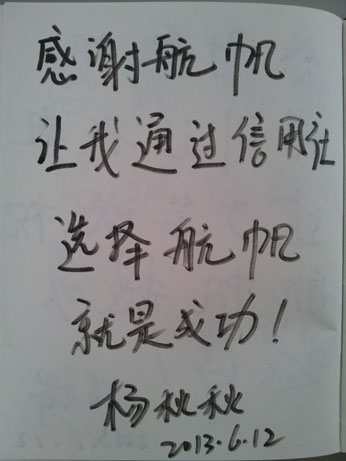 感谢航帆
让我通过信用社
选择航帆
就是成功！
杨秋秋
2013.6.12